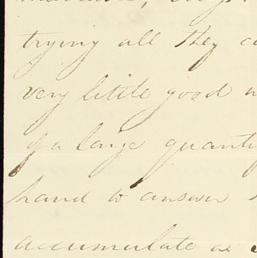 trying all they
very little good
of a large quantity
hand to answer
accumulate as